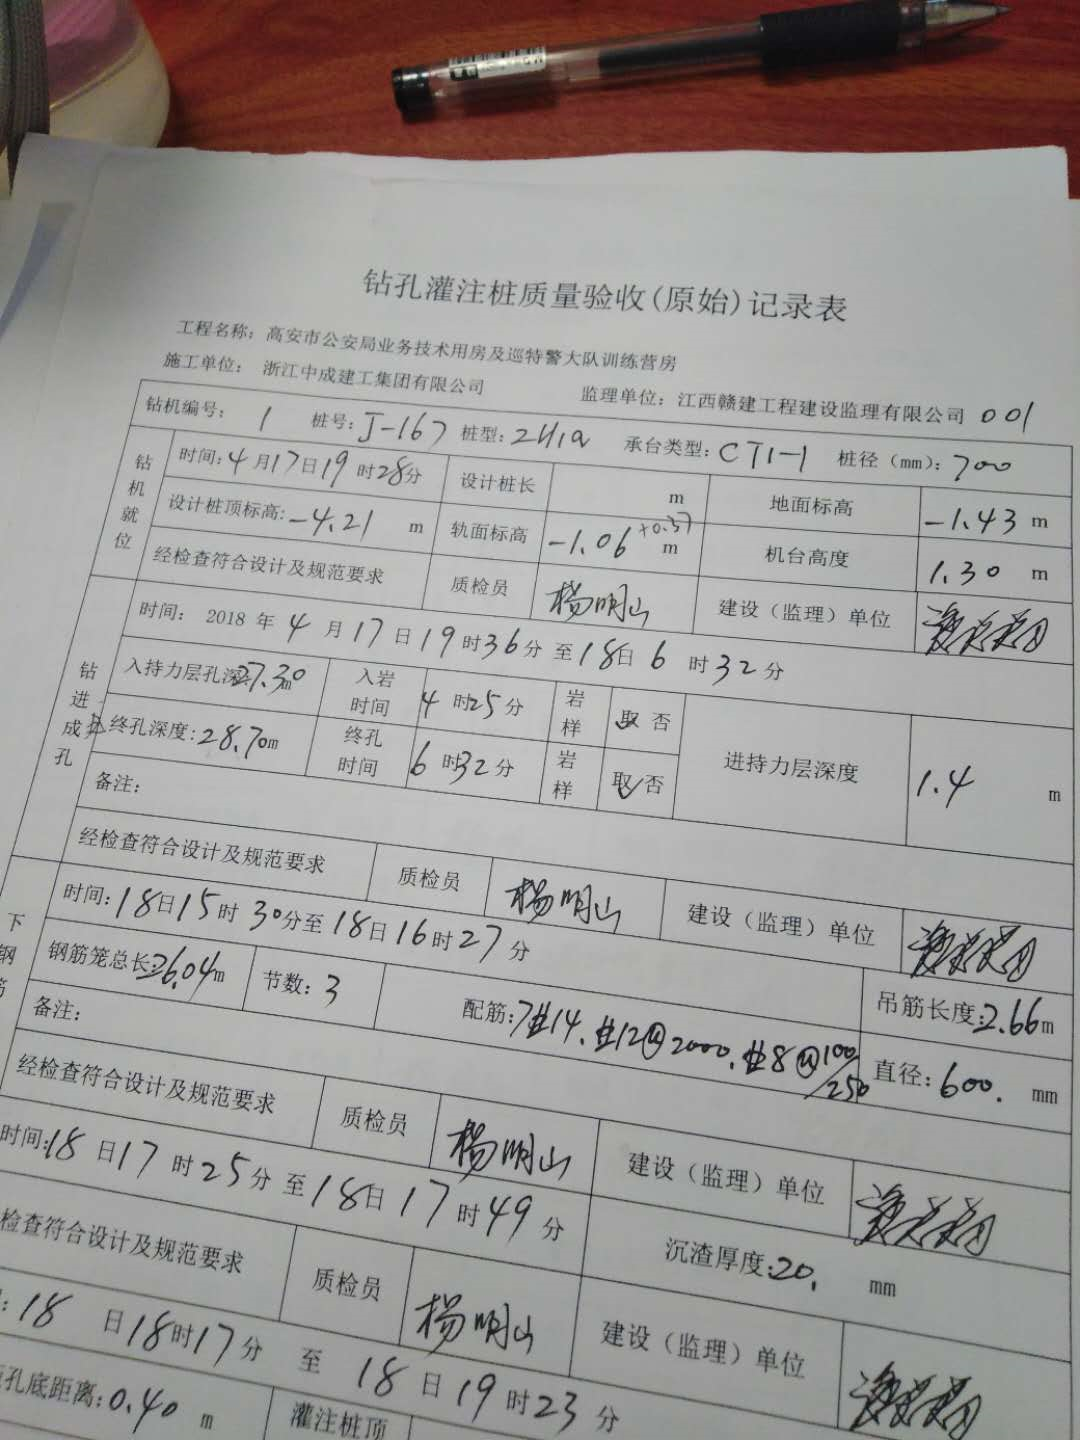 钻孔灌注桩质量验收(原始)记录表
工程名称：高安市公安局业务技术用房及巡特警大队训练营房
施工单位： 浙江中成建工集团有限公司 监理单位：江西赣建工程建设监理有限公司 001
钻机编号： 1 桩号：J-167 桩型：ZH1a 承台类型：CT1-1 桩径（mm）：700
钻机就位
时间：4月17日19时28分 设计桩长 m 地面标高 -1.43 m
设计桩顶标高：-4.21 m 轨面标高 -1.06 +0.37 m 机台高度 1.30 m
经检查符合设计及规范要求 质检员 杨明山 建设（监理）单位
钻进成孔
时间： 2018 年 4 月 17 日 19 时 36 分 至 18 日 6 时 32 分
入持力层孔深：27.30m 入岩时间 4 时 25 分 岩样 取 否 进持力层深度 1.4 m
终孔深度：28.70m 终孔时间 6 时 32 分 岩样 取 否
备注：
经检查符合设计及规范要求 质检员 杨明山 建设（监理）单位
下钢筋
时间：18日15时30分至18日16时27分
钢筋笼总长：26.04m 节数：3 配筋：7⌀14.⌀12@2000.⌀8@100/250 吊筋长度：2.66m
备注： 直径：600. mm
经检查符合设计及规范要求 质检员 杨明山 建设（监理）单位
时间：18日17时25分至18日17时49分 沉渣厚度：20. mm
检查符合设计及规范要求 质检员 杨明山 建设（监理）单位
：18日18时17分 至 18日19时23分
孔底距离：0.40 m 灌注桩顶